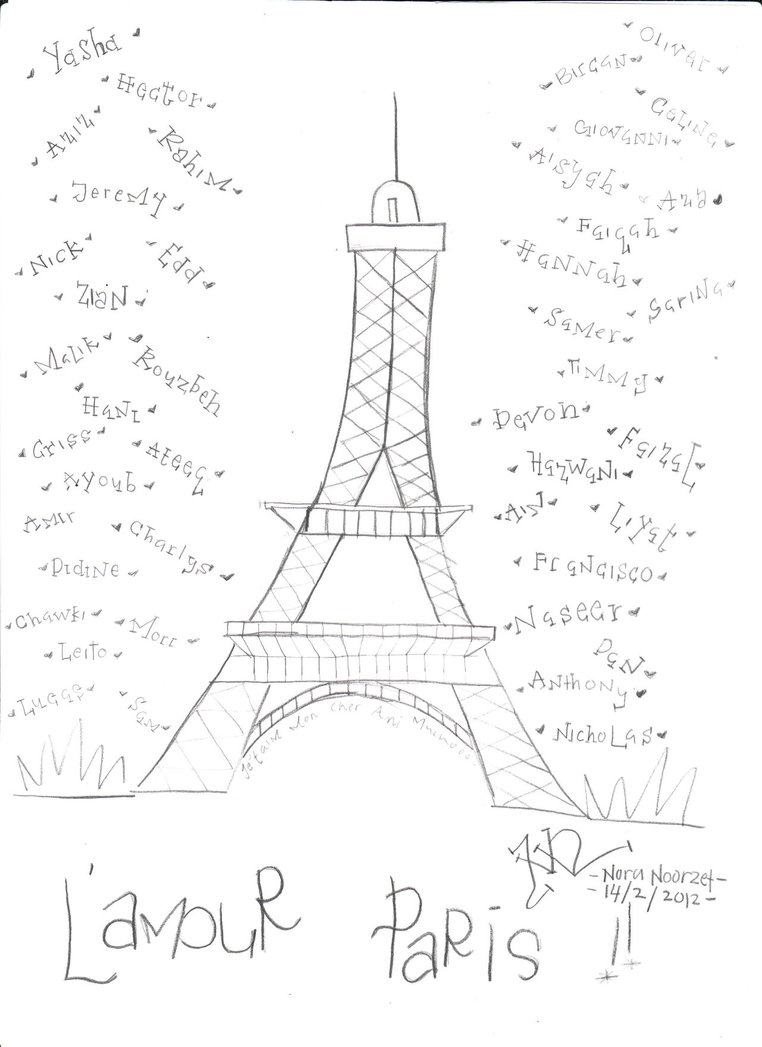 Yasha
Hector
Aziz
Rahim
Jeremy
Nick
Edd
Zian
Malik
Rouzbeh
Hani
Criss
Ateeq
Ayoub
Amir
Charlys
Didine
Chawki
Morr
Leito
Luggs
Sam
Oliver
Birgan
Celine
Giovanni
Aisyah
Ana
Faiqah
Hannah
Sarina
Samer
Timmy
Devon
Faizal
Hazwani
Ain
Francisco
Naseer
Dan
Anthony
Nicholas
Je t'aime Mon Cher Ami
- Nora Noorzet -
- 14/2/2012 -
L'amour Paris !!